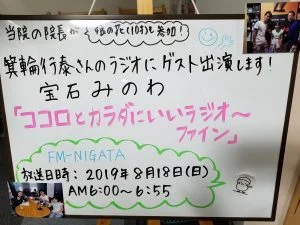 当院の院長が
箕輪行泰さんのラジオにゲスト出演します!
宝石みのわ
「ココロとカラダにいいラジオ〜
ファイン」
FM-NIGATA
放送日時:2019年8月18日(日)
AM6:00〜6:55